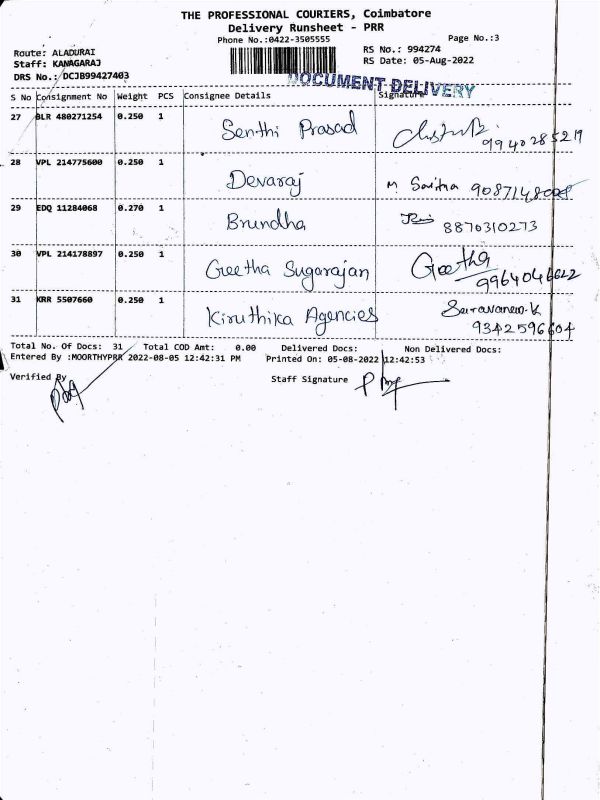 THE PROFESSIONAL COURIERS, Coimbatore
Delivery Runsheet - PRR
Phone No.:0422-3505555
Page No.:3
Route: ALADURAI
RS No.: 994274
Staff: KANAGARAJ
RS Date: 05-Aug-2022
DRS No.: DCJB99427403
DOCUMENT DELIVERY
S No Consignment No Weight PCS Consignee Details Signature
27 BLR 480271254 0.250 1 Senthi Prasad 9940285219
28 VPL 214775600 0.250 1 Devaraj M Savitha 9087148008
29 EDQ 11284068 0.270 1 Brundha 8870310273
30 VPL 214178897 0.250 1 Geetha Sugarajan Geetha 9964046622
31 KRR 5507660 0.250 1 Kiruthika Agencies Saravanan.K 9342596604
Total No. Of Docs: 31 Total COD Amt: 0.00 Delivered Docs: Non Delivered Docs:
Entered By :MOORTHYPRR 2022-08-05 12:42:31 PM Printed On: 05-08-2022 12:42:53
Verified By Staff Signature